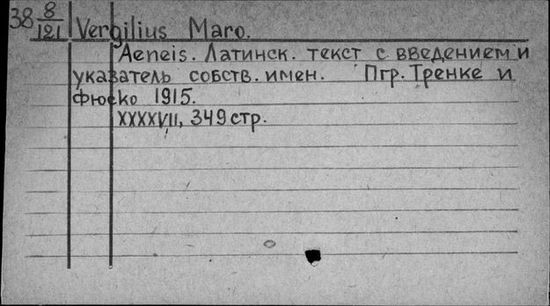 38 8/121 Vergilius Maro.
Aeneis. Латинск. текст с введением и
указатель собств. имен. Пгр. Тренке и
Фюско 1915.
XXXXVII, 349 стр.